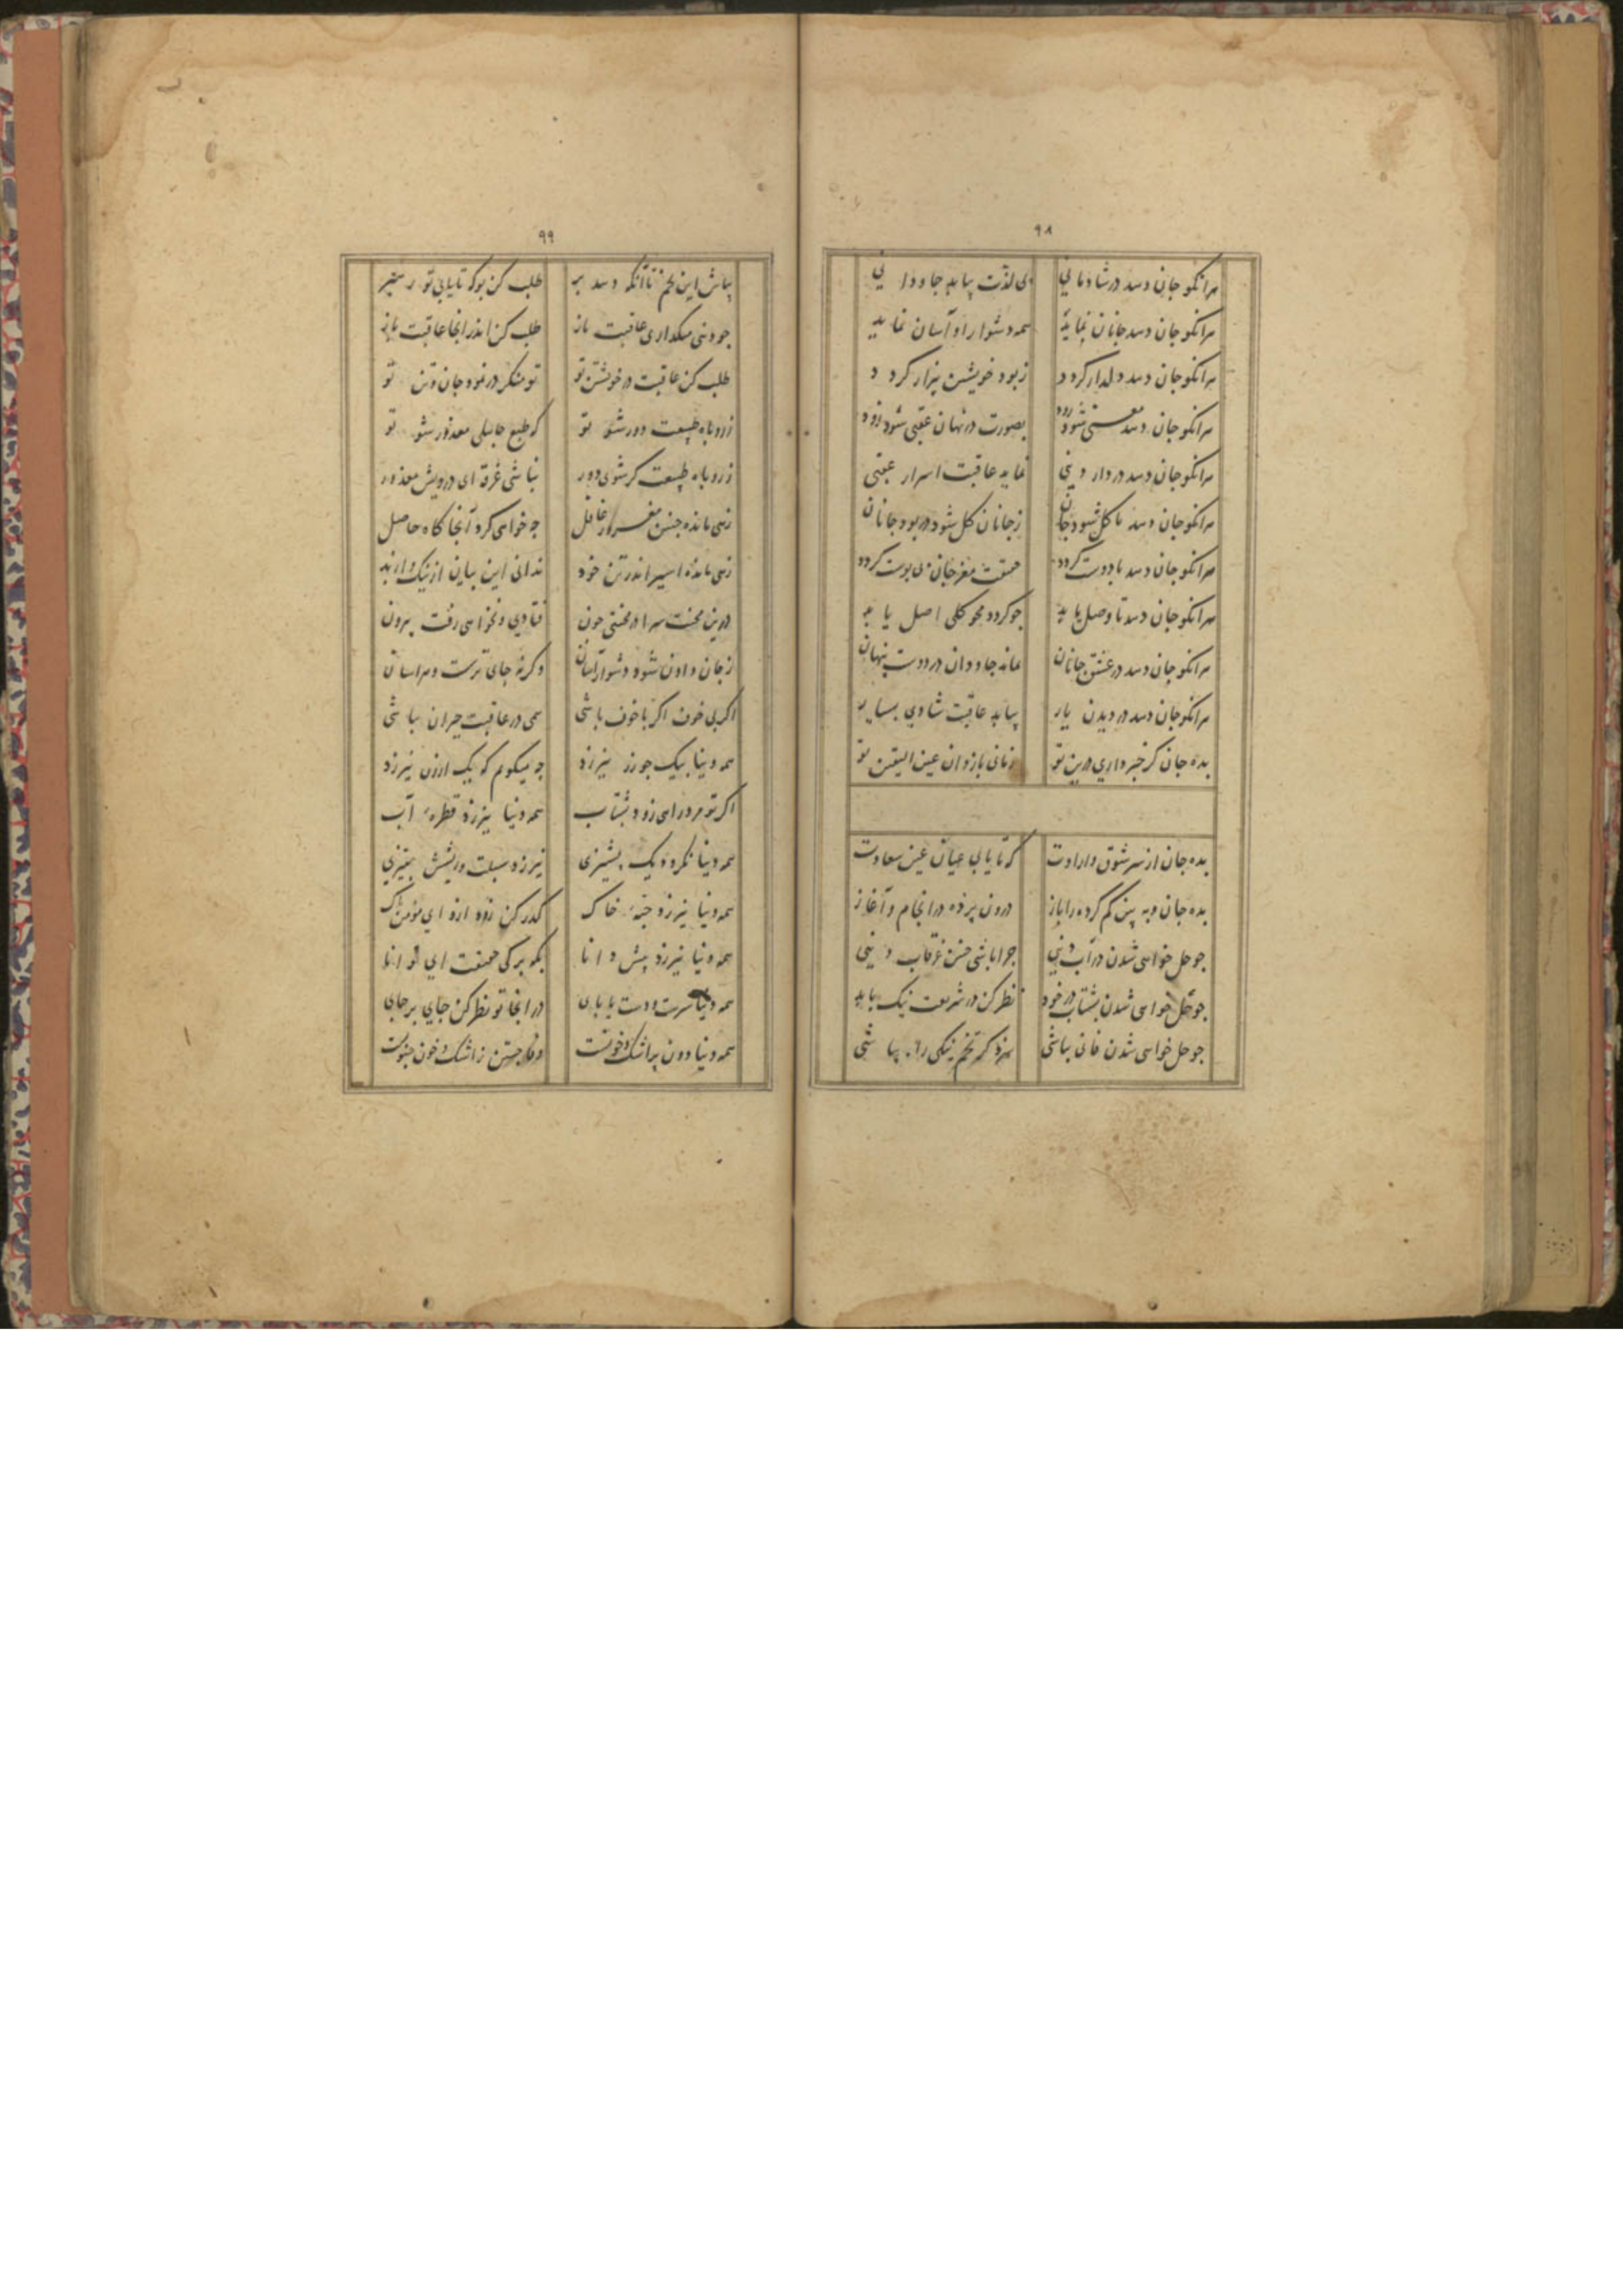 ۹۸
هرانکو جان دهد در شادمانی بی لذت بیابد جاودانی
هرانکو جان دهد جانان نماید همه دشوار او آسان نماید
هرانکو جان دهد دلدار کردد ز بود خویشتن بیزار کردد
هرانکو جان دهد معنی شود زود بصورت در نهان عقبی شود زود
هرانکو جان دهد در دار دنیی نماید عاقبت اسرار عقبی
هرانکو جان دهد تا کل شود جان ز جانان کل شود در بود جانان
هرانکو جان دهد با دوست کردد حقیقت مغز جان بی پوست کردد
هرانکو جان دهد تا وصل یابد جو کردد محو کلی اصل یابد
هرانکو جان دهد در عشق جانان بماند جاودان در دوست پنهان
هرانکو جان دهد در دیدن یار بیابد عاقبت شادی بسیار
بده جان کر خبر داری درین تو زمانی باز دان عین الیقین تو
بده جان از سر شوق و ارادت که تا یابی عیان عین سعادت
بده جان و به بین کم کرده را باز درون پرده در انجام و آغاز
جو حل خواهی شدن در آب دنیی جرا باشی جنین غرقاب دنیی
جو حل خواهی شدن بشتاب در خود نظر کن در شریعت نیک با بد
جو حل خواهی شدن فانی بباشی سزد کر تخم نیکی را بپاشی
۹۹
بپاش این تخم تا آنکه دهد بر طلب کن بو که تا یابی تو رهبر
جو دنیی میکذاری عاقبت باز طلب کن اندر انجا عاقبت باز
طلب کن عاقبت در خویشتن تو تو منکر در نمود جان و تن تو
ز روباه طبیعت دور شو تو که طبع جاهلی معذور شو تو
ز روباه طبیعت کر شوی دور نباشی غرقه ای درویش معذور
زهی مانده جنین مغرور غافل جه خواهی کرد آنجا کاه حاصل
زهی مانده اسیر اندر تن خود ندانی این بیان از نیک و از بد
درین محنت سرا در محنتی جون فتادی و نخواهی رفت بیرون
ز جان دادن شود دشوارت آسان وکرنه جای ترست و هراسان
اکر بی خوف اکر با خوف باشی همی در عاقبت حیران بباشی
همه دنیا بیک جو زر نیرزد جه میکویم که یک ارزن نیرزد
اکر تو مرد راهی زود بشتاب همه دنیا نیرزد قطرهٔ آب
همه دنیا نکردد یک پشیزی نیرزد سبلت و ریشش بتیزی
همه دنیا نیرزد حبهٔ خاک کذر کن زود ازو ای مؤمن پاک
همه دنیا نیرزد پیش دانا بکو برکی حقیقت ای توانا
همه دنیا سرست و دست یا پای در انجا تو نظر کن جای بر جای
همه دنیا دون پر اشک و خونست وفا جستن ز اشک و خون جنونست